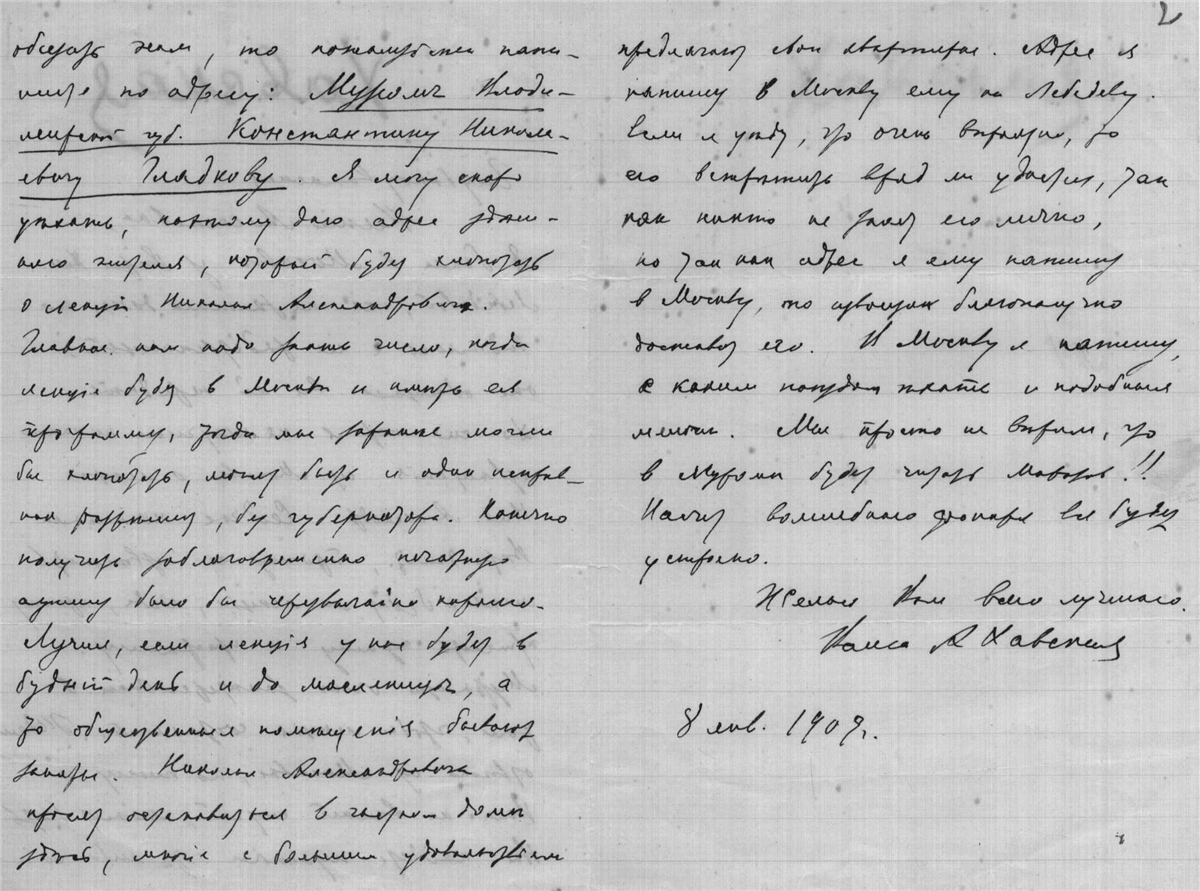 2
обсудить нам, то пожалуйста напи-
шите по адресу: Муромъ Влади-
мирской губ. Константину Никола-
евичу Гладкову. Я могу скоро
уѣхать, поэтому даю адрес здѣш-
няго жителя, который будет хлопотать
о лекціи Николая Александровича.
Главное нам надо знать число, когда
лекція будет в Москвѣ и имѣть ея
программу, тогда мы заранѣе могли
бы хлопотать, может быть и один исправ-
ник разрѣшит, без губернатора. Конечно
получить заблаговременно печатную
афишу было бы чрезвычайно хорошо.
Лучше, если лекція у нас будет в
будній день и до масленицы, а
то общественныя помѣщенія бывают
заняты. Николая Александровича
просят остановиться в частном домѣ
здѣсь, многіе с большим удовольствіем
предлагают свои квартиры. Адрес я
напишу в Москву ему на Лебедеву.
Если я уѣду, что очень вѣроятно, то
его встрѣтить вряд ли удастся, так
как никто не знает его лично,
но так как адрес я ему напишу
в Москву, то извозчик благополучно
доставит его. В Москву я напишу,
с каким поѣздом ѣхать и подобныя
мелочи. Мы просто не вѣрим, что
в Муромѣ будет читать Морозов!!
Насчет волшебнаго фонаря все будет
устроено.
Желаю Вам всего лучшаго.
Ваша А Хавская
8 янв. 1909г.